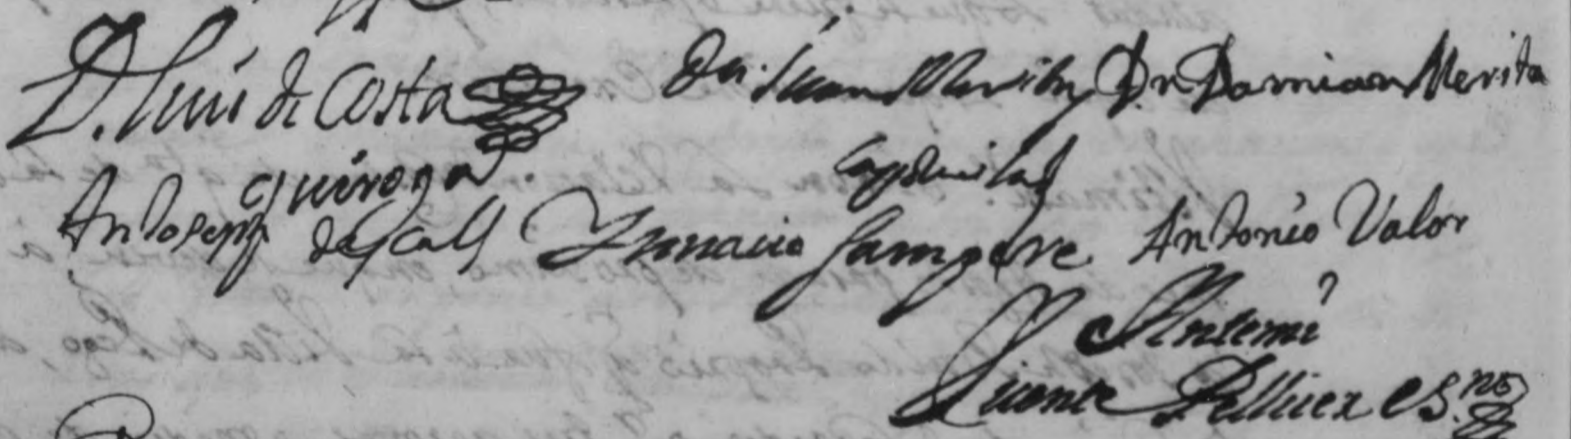 D. Luis de Costa Dn. Juan Merita Dn Damian Merita
Quiroga.
Anto Seph descals Ignacio Sampere Antonio Valor
Antemi
Vicente Pellicer esno